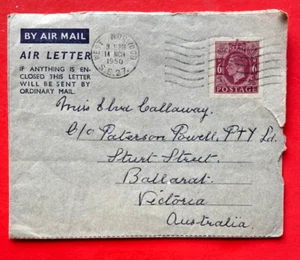 BY AIR MAIL
AIR LETTER
IF ANYTHING IS EN-
CLOSED THIS LETTER
WILL BE SENT BY
ORDINARY MAIL.
14 NOV
1950
S.E.27.
6 6
POSTAGE
Miss Elva Callaway.
C/o Paterson Powell. P+Y Ld.
Sturt Street.
Ballarat.
Victoria
Australia.